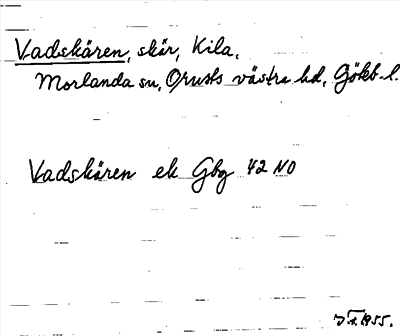 Vadskären, skär, Kila,
Morlanda sn, Orusts västra hd, Götkb. l.
Vadskären ek Gbg 42 NO
1955.